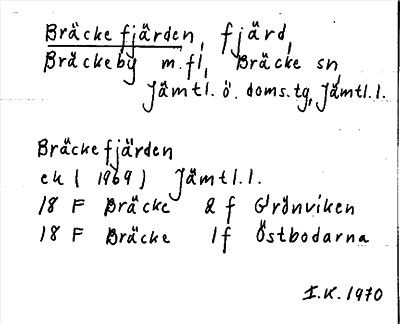 Bräckefjärden, fjärd,
Bräckeby m.fl, Bräcke sn,
Jämtl. ö. doms.tg, Jämtl.l.
Bräckefjärden
ek ( 1969 ) Jämtl.l.
18 F Bräcke 2 f Grönviken
18 F Bräcke 1 f Östbodarna
I.K. 1970